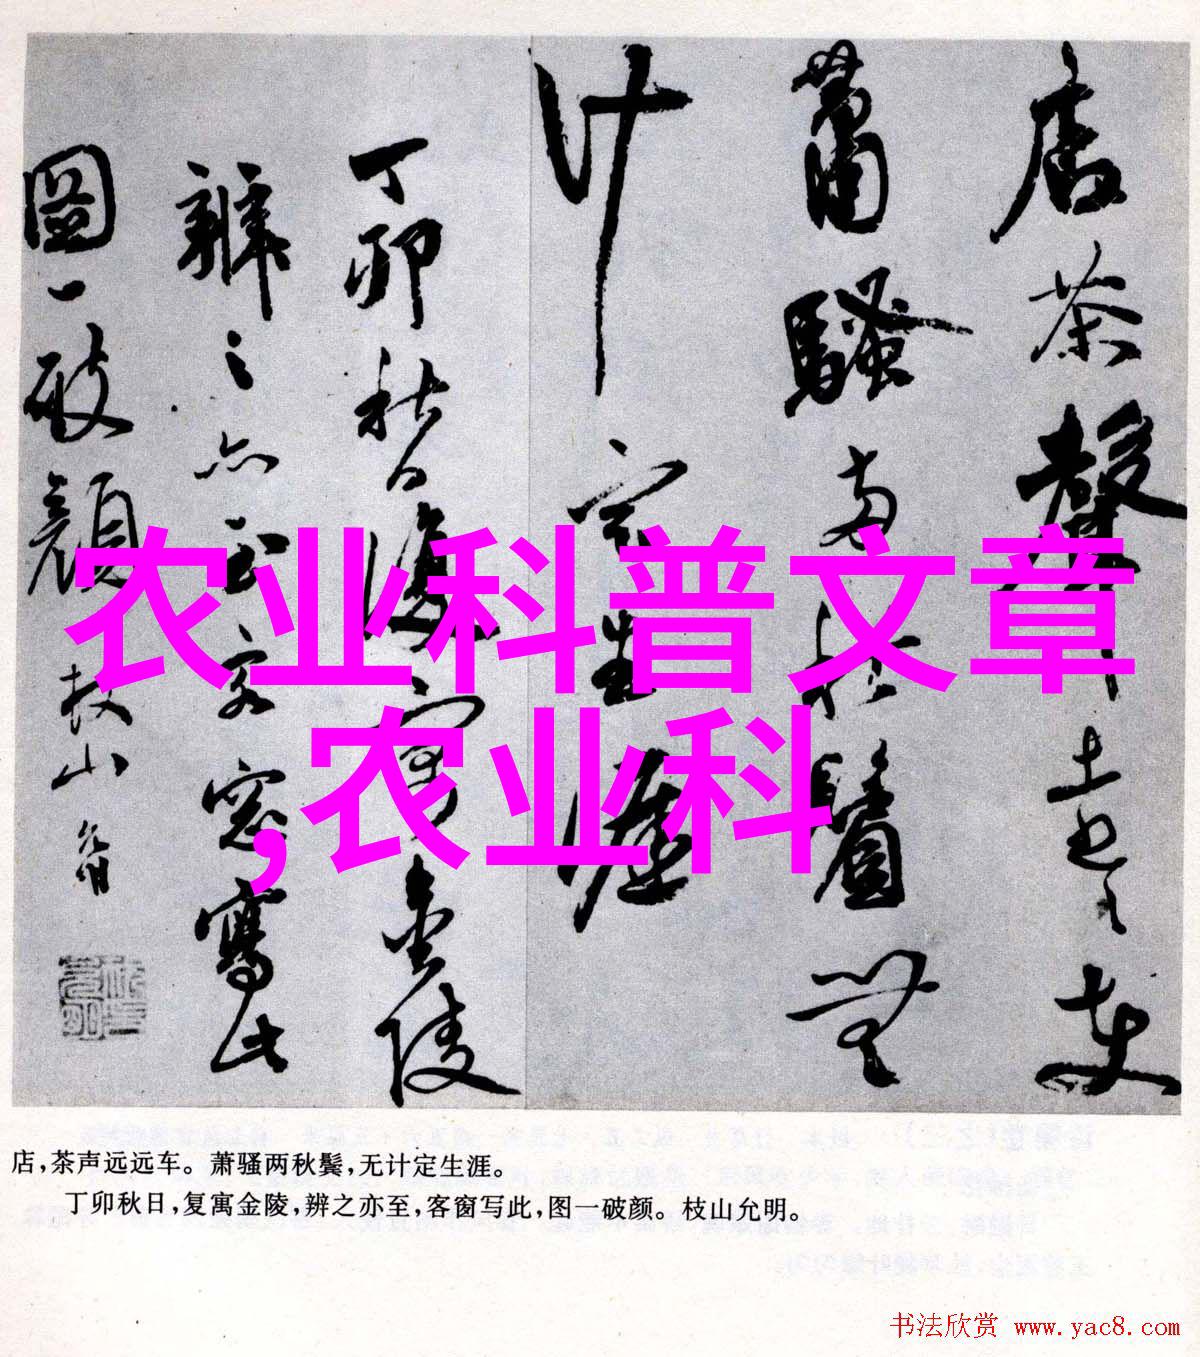 店茶聲遠遠車
蕭騷兩秋鬢無
计定生涯
丁卯秋日復寓金陵
辨之亦至客窓寫此
圖一破顔枝山允明
农业科普文章
,农业科
店,茶声远远车。萧骚两秋鬓,无计定生涯。
丁卯秋日,复寓金陵,辨之亦至,客窗写此,图一破颜。枝山允明。
书法欣赏 www.yac8.com